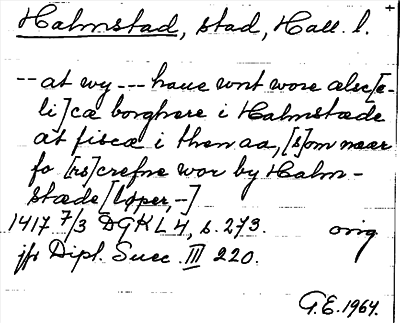 Halmstad, stad, Hall. l.
-- at wy --- haue wnt wore ælsc[e-
li]cæ borghere i Halmstæde
at fiscæ i then aa, [s]om nær
fo [rs]crefne wor by Halm-
stæde [løper, -]
1417 7/3 DGKL 4, s. 273. orig
jfr Dipl. Suec. III 220.
G.E. 1964.